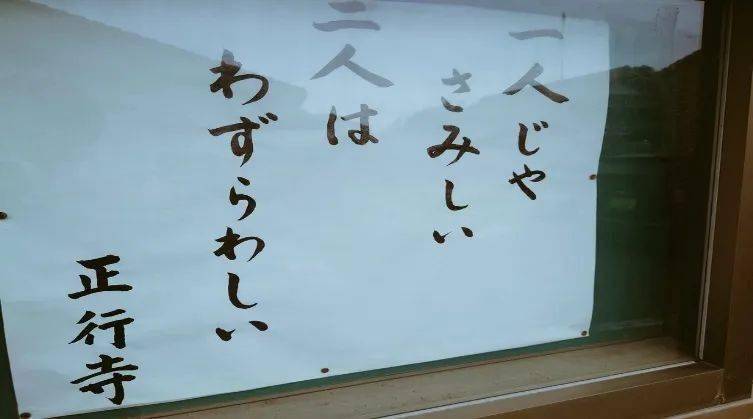 一人じゃ
さみしい
二人は
わずらわしい
正行寺